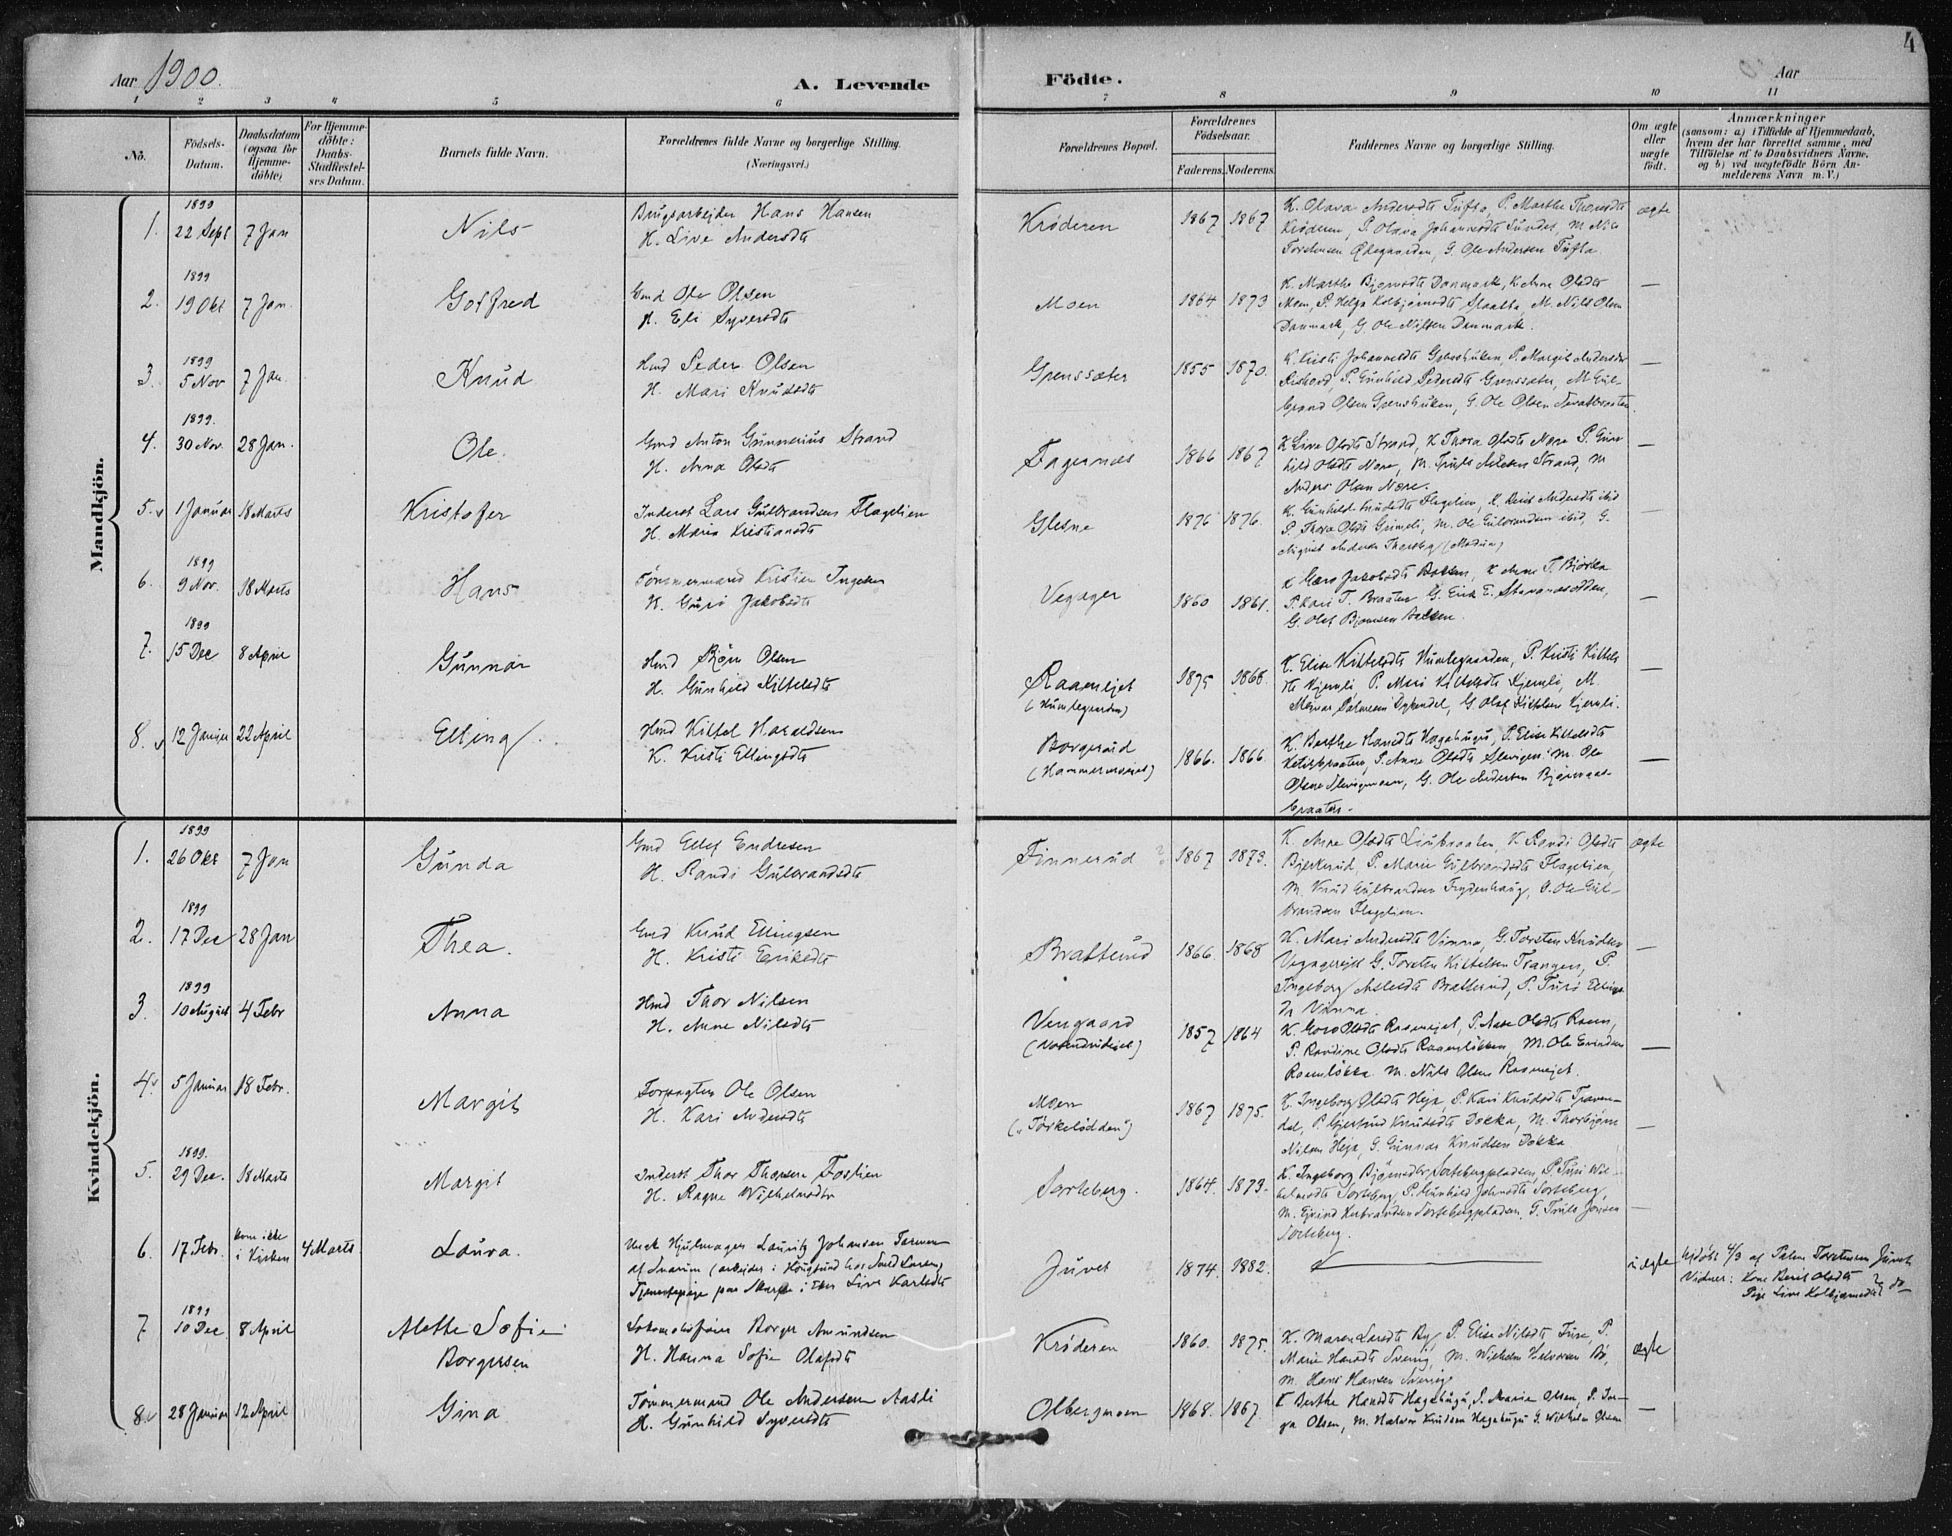 4
Aar 1900.
A. Levende Födte.
Aar
1 2 3 4 5 6 7 8 9 10 11
No.
Födsels-
Datum.
Daabsdatum
(ogsaa for
Hjemme-
döbte)
For Hjemme-
döbte:
Daabs-
Stadfæstel-
ses Datum.
Barnets fulde Navn.
Forældrenes fulde Navne og borgerlige Stilling.
(Næringsvei.)
Forældrenes Bopæl.
Forældrenes
Födselsaar.
Faderens. Moderens.
Faddernes Navne og borgerlige Stilling.
Om ægte
eller
uægte
födt.
Anmærkninger
(saasom: a) i Tilfælde af Hjemmedaab,
hvem der har forrettet samme, med
Tilföielse af to Daabsvidners Navne,
og b) ved uægtefödte Börn An-
melderens Navn m. V.)
Mandkjön.
1. 1899 22 Sept 7 Jan Nils
Brugsarbeider Hans Hansen
H. Live Andersdt
Krøderen 1867 1867
K. Olava Andersdt Tufto, P. Marthe Thorsdt
Krøderen, P. Olava Johannesdt Sundet, M. Nils
Torstensen Ødegaarden, G. Ole Andersen Tufto
ægte
2. 1899 19 Okt 7 Jan. Gotfred
Gmd Ole Olsen
H. Eli Syversdt
Moen 1864 1873
K. Marthe Bjørnsdt Danmark, K. Anne Olsdt
Moen, P. Helga Kolbjørnsdt, M. Nils Olsen
Danmark, G. Ole Nilsen Danmark.
—
3. 1899 5 Nov 7 Jan Knud
Hmd Peder Olsen
H. Mari Knudsdt
Grenssæter 1855 1870.
K. Kristi Johannesdt P. Margit Andersdr
P. Gunhild Pedersdt Grenssæter, M Gul-
brand Olsen G. Ole Olsen
—
4. 1899. 30 Nov. 28 Jan. Ole.
Gmd Anton Gunnerius Strand
H. Anna Olsdt
Fagernæs 1866 1867
K Live Olsdt Strand, K Thora Olsdt Nære P. Gun-
hild Olsdt Nære, M. Truls Strand, M
Anders Olsen Nære.
—
5. 1 Januar 18 Marts Kristofer
Inderst Lars Gulbrandsen Flagelien
H. Maria Kristiansdt
Glesne 1876 1876.
K. Gunhild Knudsdt Flagelien, K. Andersdt ibid
P. Thora Olsdt Grimeli, M. Ole Gulbrandsen ibid, G.
August Andersen (Modum)
—
6. 1899 9 Nov. 18 Marts Hans
Tømmermand Kristian Ingebr
H. Guri Jakobsdt
Vegager 1860 1861.
K Jakobsdt Bakken, K Anne P. Bjørka
P. Kari T. Braaten G. Erik E.
G. Olaf Bjørnsen Bakken.
—
7. 1899 15 Dec 8 April Gunnar
Hmd Bjørn Olsen
H. Gunhild Kittelsdt
Raamejet
(Humlegaarden)
1875 1868.
K. Elise Kittelsdt Humlegaarden, P. Kristi Kittels
dt Kjernli, P. Mari Kittelsdt Kjernli, M.
G. Olaf Kittelsen Kjernli.
—
8. 12 Januar 22 April Elling
Hmd Kittel Haraldsen
K. Kristi Ellingsdt
Borgerud
(Hammerneiet)
1866. 1866.
K. Berthe Hansdt Hagahugu, P. Elise Kittelsdt
Ketilsbraaten, P. Anne Olsdt M. Ole
Olsen G. Ole Andersen Bjørnaas-
braaten.
—
Kvindekjön.
1. 1899 26 Okt 7 Jan Gunda
Gmd Ellef Endresen
H. Randi Gulbrandsdt
Finnerud 1867 1873.
K. Anne Olsdt Liubraaten, K. Randi Olsdt
Bjerkerud, P. Marie Gulbrandsdt Flagelien,
M. Knud Gulbrandsen Frydenhaug, G. Ole Gul-
brandsen Flagelien.
ægte
2. 1899 17 Dec 28 Jan Thea.
Gmd Knud Ellingsen
H. Kristi Eriksdt
Bratterud 1866. 1868
K. Mari Andersdt Vinna, G. Torsten Knudsen
G. Torsten Kittelsen Trangen, P.
Ingeborg Aslesdt Bratterud, P. Turi Ellings
dt Vinna.
—
3. 1899 10 August 4 Febr Anna
Hmd Thor Nilsen
H. Anne Nilsdt
Vengaard
1857 1864
K. Goro Olsdt Raamejet, P. Aase Olsdt Raaen,
P. Randine Olsdt Raamløkken, M. Ole Evindsen
Raamløkka M. Nils Olsen Raamejet.
—
4. 5 Januar 18 Febr. Margit
Forpagter Ole Olsen
H. Kari Andersdt
Moen
("Torkelødden")
1867 1875.
K. Ingeborg Olsdt Heje, P. Kari Knudsdt Traven-
dal, P. Gjertrud Knudsdt Dokka, M. Thorbjørn
Nilsen Heje, G. Gunnar Knudsen Dokka
—
5. 1899. 29 Dec. 18 Marts Margit
Inderst Thor Thoresen Fostien
H. Ragne Wilhelmsdtr
Sorteberg. 1864. 1873.
K. Ingeborg Bjørnsdtr Sortebergpladsen, P. Turi Wil-
helmsdt Sorteberg, P. Gunhild Johnsdt Sorteberg,
M. Ejvind Herbrandsen Sortebergpladsen, G. Truls Jonsen
Sorteberg.
—
6. 17 Febr. kom ikke
i Kirken 4 Marts Laura.
Unck Hjulmager Lauritz Johansen Tarmen
af Snarum (arbeider i Hougsund hos Larsen)
Tjenestepige paa i Eker Live Karlsdt
Juvet 1874. 1882.
—
uægte
Hjdøbt 4/3 af Palme Torstensen Juvet
Vidner: Kone Berit Olsdt
Pige Live Kolbjørnsdt do
7 1899 10 Dec. 8 April Alette Sofie
Borgersen
Lokomotivfører Borger Amundsen
H. Hanna Sofie Olafsdt
Krøderen 1860. 1875.
K. Maren Larsdt By, P. Elise Nilsdt Fure, P.
Marie Hansdt Svensrg, M. Wilhelm Halvorsen Bø,
M. Hans Hansen
ægte
8. 28 Januar 12 April Gina
Tømmermand Ole Andersen Aasli
H. Gunhild Syversdt
Olbergmoen 1868. 1867.
K Berthe Hansdt Hagahugu, P. Marie Olsen, P. Tor-
ga Olsen, M. Halvor Knudsen Hagahugu G. Wilhelm Olsen
—